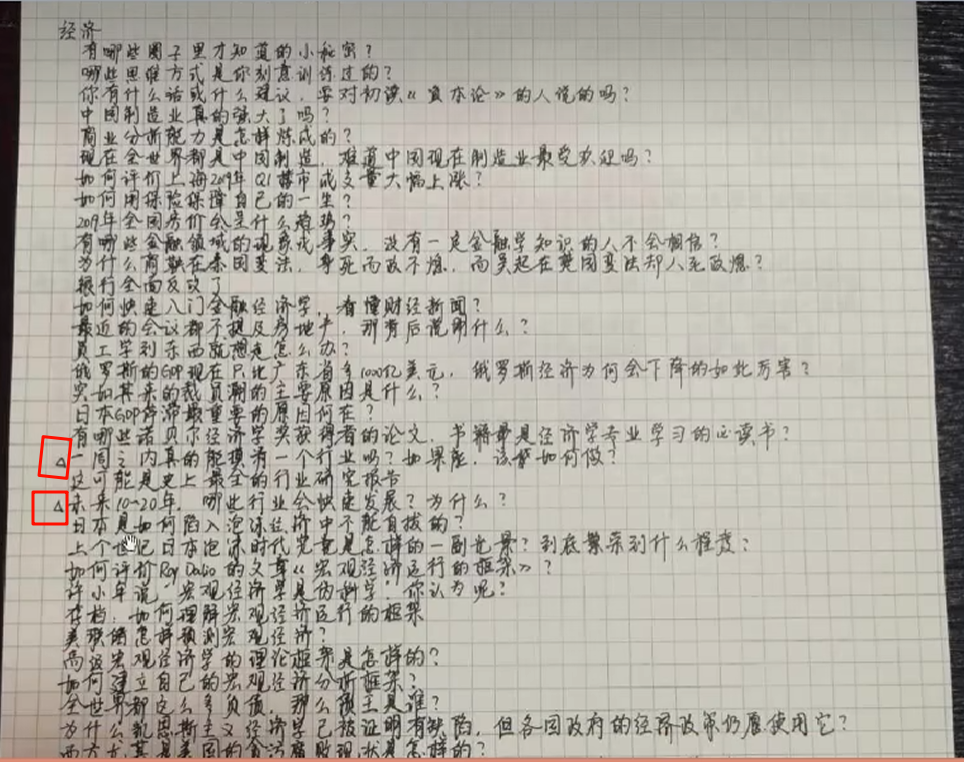 经济
有哪些圈子里才知道的小秘密?
哪些思维方式是你刻意训练过的?
你有什么话或什么建议,要对初读《资本论》的人说的吗?
中国制造业真的强大了吗?
商业分析能力是怎样炼成的?
现在全世界都是中国制造,难道中国现在制造业最受欢迎吗?
如何评价上海2019年Q1楼市成交量大幅上涨?
如何用保险保障自己的一生?
2019年全国房价会呈什么趋势?
有哪些金融领域的现象或事实,没有一定金融学知识的人不会相信?
为什么商鞅在秦国变法,身死而政不熄,而吴起在楚国变法却人死政熄?
银行全面反攻了
如何快速入门金融经济学,看懂财经新闻?
最近的会议都不提及房地产,那背后说明什么?
员工学到东西就想走怎么办?
俄罗斯的GDP现在只比广东省多1000亿美元,俄罗斯经济为何会下降的如此厉害?
突如其来的裁员潮的主要原因是什么?
日本GDP停滞最重要的原因何在?
有哪些诺贝尔经济学奖获得者的论文,书籍最是经济学专业学习的必读书?
△一周之内真的能摸清一个行业吗?如果能,该如何做?
这可能是史上最全的行业研究报告
△未来10-20年,哪些行业会快速发展?为什么?
日本是如何陷入泡沫经济中不能自拔的?
上个世纪日本泡沫时代究竟是怎样的一副光景?到底繁荣到什么程度?
如何评价Ray Dalio的文章《宏观经济运行的框架》?
许小年说"宏观经济学是伪科学",你认为呢?
存档:如何理解宏观经济运行的框架
美联储怎样预测宏观经济?
高级宏观经济学的理论框架是怎样的?
如何建立自己的宏观经济分析框架?
全世界都这么多负债,那么债主是谁?
为什么凯恩斯主义经济学已被证明有缺陷,但各国政府的经济政策仍愿使用它?
西方尤其是美国的贪污腐败现状是怎样的?